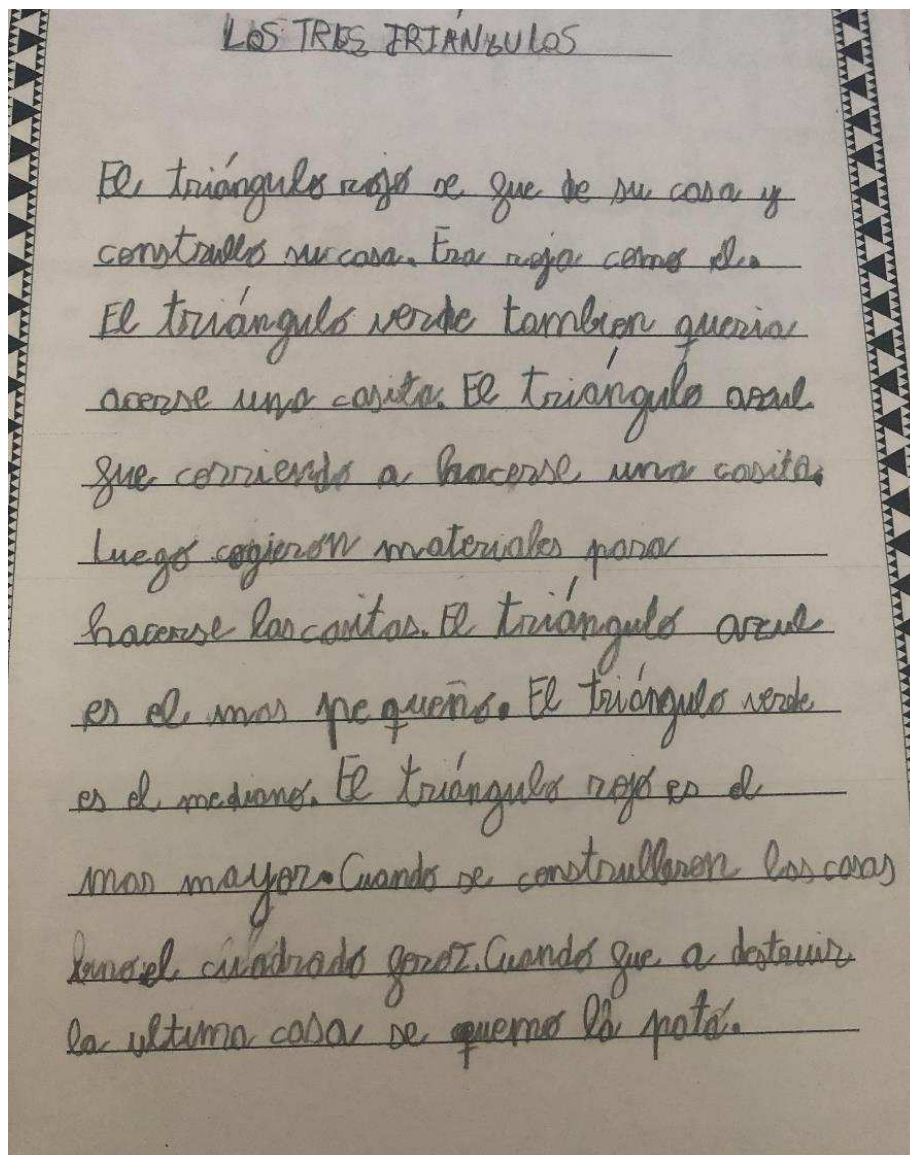 LOS TRES TRIÁNGULOS
El triángulo rojo se fue de su casa y
construllo su casa. Era roja como el.
El triángulo verde tambien queria
acerse una casita. El triángulo azul
fue corriendo a hacerse una casita.
luego cogieron materiales para
hacerse las casitas. El triángulo azul
es el mas pequeño. El triángulo verde
es el mediano. El triángulo rojo es el
mas mayor. Cuando se construlleron las casas
el cuadrado feroz. Cuando fue a destruir
la ultima casa se quemo la pata.